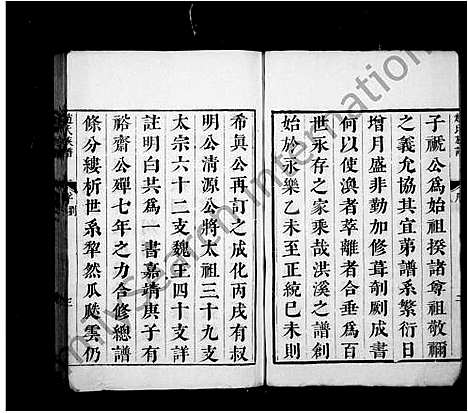 子祇公爲始祖揆諸尊祖敬禰
之義允協其宜第譜系繁衍日
增月盛非勤加修葺剞劂成書
何以使渙者萃離者合垂爲百
世永存之家乘哉洪溪之譜創
始於永樂乙未至正統巳未則
希眞公再訂之成化丙戌有叔
明公清源公將太祖三十九支
太宗六十二支魏王四十支詳
註明白共爲一書嘉靖庚子有
裕齋公輝七年之力合修總譜
條分縷析世系犂然瓜瓞雲仍
趙氏族譜
三